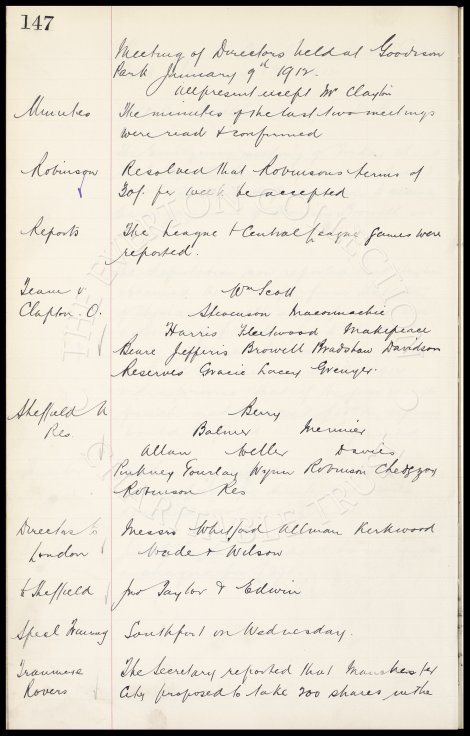 147
Meeting of Directors held at Goodison
Park January 9th 1912.
All present except Mr Clayton
Minutes The minutes of the last two meetings
were read & confirmed
Robinson Resolved that Robinsons terms of
30/- per week be accepted
Reports The League & Central League games were
reported.
Team v Wm Scott
Clapton. O. Stevenson Maconnachie
Harris Fleetwood Makepeace
Beare Jefferis Browell Bradshaw Davidson
Reserves Gracie Lacey Grenyer.
Sheffield U Berry
Res. Balmer Meunier
Allan Weller Davies
Pinkney Gourlay Wynn Robinson Chedgzoy
Robinson Res
Directors to Messrs Whitford Allman Kirkwood
London Wade & Wilson
to Sheffield Jno Taylor & Edwin
Specl Training Southport on Wednesday.
Tranmere The Secretary reported that Manchester
Rovers City proposed to take 200 shares in the
THE EVERTON COLLECTION
CHARITABLE TRUST